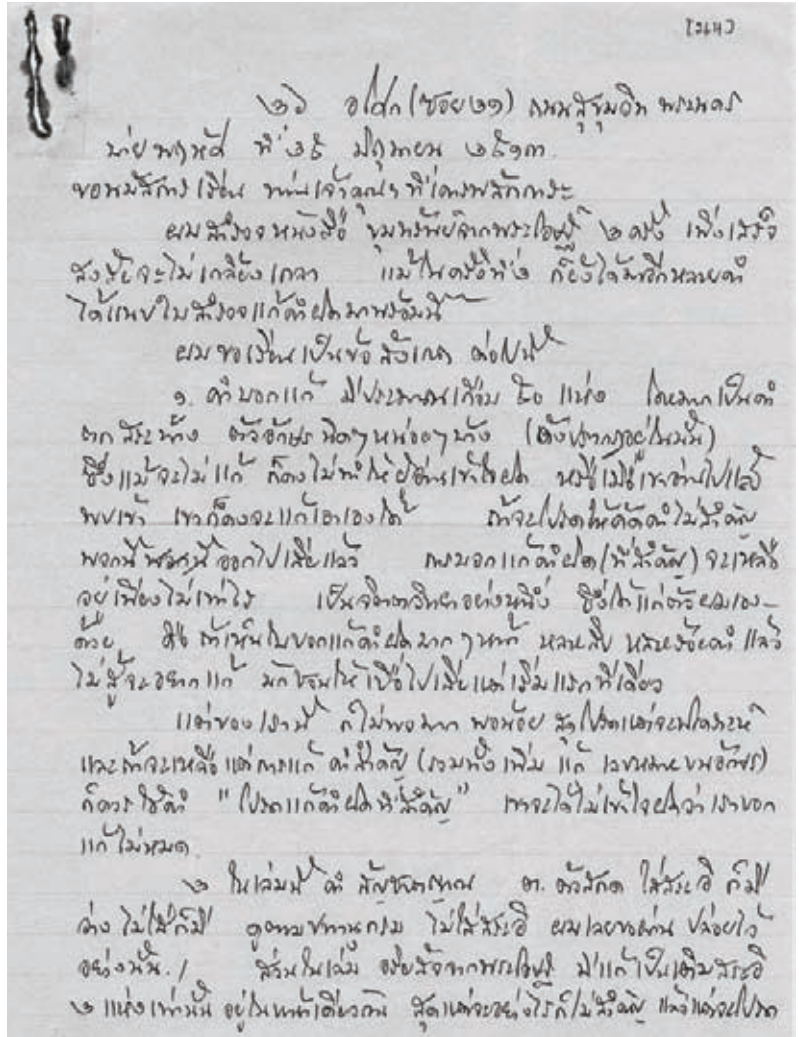 ๒๖ อโศก (ซอย ๒๑) ถนนสุขุมวิท พระนคร
บ่ายพฤหัส ที่ ๒๕ มิถุนายน ๒๕๑๓.
ขอนมัสการ เรียน ท่านเจ้าคุณฯ ที่เคารพสักการะ
ผมสำรวจหนังสือ ขุมทรัพย์จากพระโอษฐ์ ๒ ครั้ง เพิ่งเสร็จ
สงสัยจะไม่เกลี้ยงเกลา แม้ในครั้งที่ ๒ ก็ยังได้พบอีกหลายคำ
ได้แนบใบสำรวจแก้คำผิดมาพร้อมนี้
ผมขอเรียนเป็นข้อสังเกต ต่อไปนี้
๑. คำบอกแก้ มีประมาณเกือบ แห่ง โดยมากเป็นคำ
ตก สระบ้าง ตัวอักษรนิดๆหน่อยๆบ้าง (ดังปรากฏอยู่ในนั้น)
ซึ่งแม้จะไม่แก้ ก็คงไม่ทำให้ผู้อ่านเข้าใจผิด หรือเมื่อเขาอ่านไปแล้ว
พบเข้า เขาก็คงจะแก้เอาเองได้ ถ้าจะโปรดให้คัดคำไม่สำคัญ
พวกนี้ออกไปเสียแล้ว การบอกแก้คำผิด (ที่สำคัญ) จะเหลือ
อยู่เพียงไม่เท่าไร เป็นจิตตวิทยาอย่างหนึ่ง ซึ่งได้แก่ตัวผมเอง
ด้วย คือ ถ้าเห็นใบบอกแก้คำผิดมากๆหน้า หลายสิบ หลายร้อยคำ แล้ว
ไม่สู้จะอยากแก้ มักชวนให้เบื่อไปเสียแต่เริ่มแรกทีเดียว
แต่ของเรานี้ ก็ไม่พอมาก พอน้อย สุดโปรดแต่จะวิเคราะห์
และถ้าจะเหลือแต่การแก้ คำสำคัญ (รวมทั้งเพิ่ม แก้ เลขหมายบนอักษร)
ก็ควรใช้คำ "โปรดแก้คำผิดที่สำคัญ" เขาจะได้ไม่เข้าใจผิดว่าเราบอก
แก้ไม่หมด.
๒ ในเล่มนี้ คำ ต. ตัวสกด ใส่สระอิ ก็มี
บ้าง ไม่ใส่ก็มี ดูตามปทานุกรม ไม่ใส่สระอิ ผมเลยขอผ่าน ปล่อยไว้
อย่างนั้น. / ส่วนในเล่ม อริยสัจจากพระโอษฐ์ มีแก้เป็นเติมสระอิ
๒ แห่งเท่านั้น อยู่ในหน้าเดียวกัน สุดแต่จะอย่างไรก็ไม่สำคัญ แล้วแต่จะโปรด